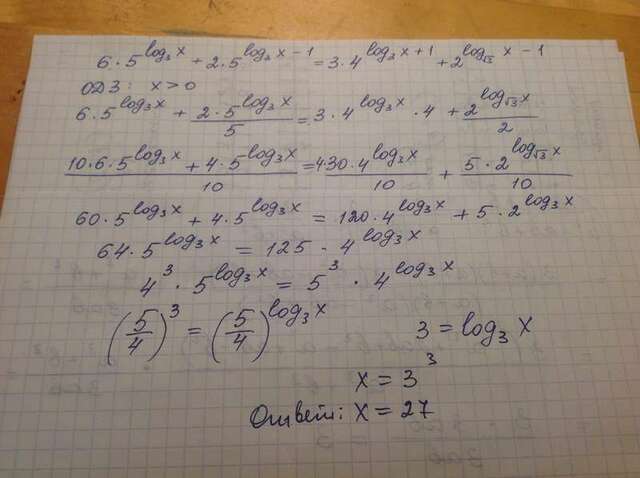 6 · 5^(log₃ x) + 2 · 5^(log₃ x − 1) = 3 · 4^(log₃ x + 1) + 2^(log_√3 x − 1)
ОДЗ: x > 0
6 · 5^(log₃ x) + (2 · 5^(log₃ x))/5 = 3 · 4^(log₃ x) · 4 + (2^(log_√3 x))/2
(10 · 6 · 5^(log₃ x) + 4 · 5^(log₃ x))/10 = (4 30 · 4^(log₃ x))/10 + (5 · 2^(log_√3 x))/10
60 · 5^(log₃ x) + 4 · 5^(log₃ x) = 120 · 4^(log₃ x) + 5 · 2^(log₃ x)
64 · 5^(log₃ x) = 125 · 4^(log₃ x)
4³ · 5^(log₃ x) = 5³ · 4^(log₃ x)
(5/4)³ = (5/4)^(log₃ x) 3 = log₃ x
x = 3³
Ответ: x = 27